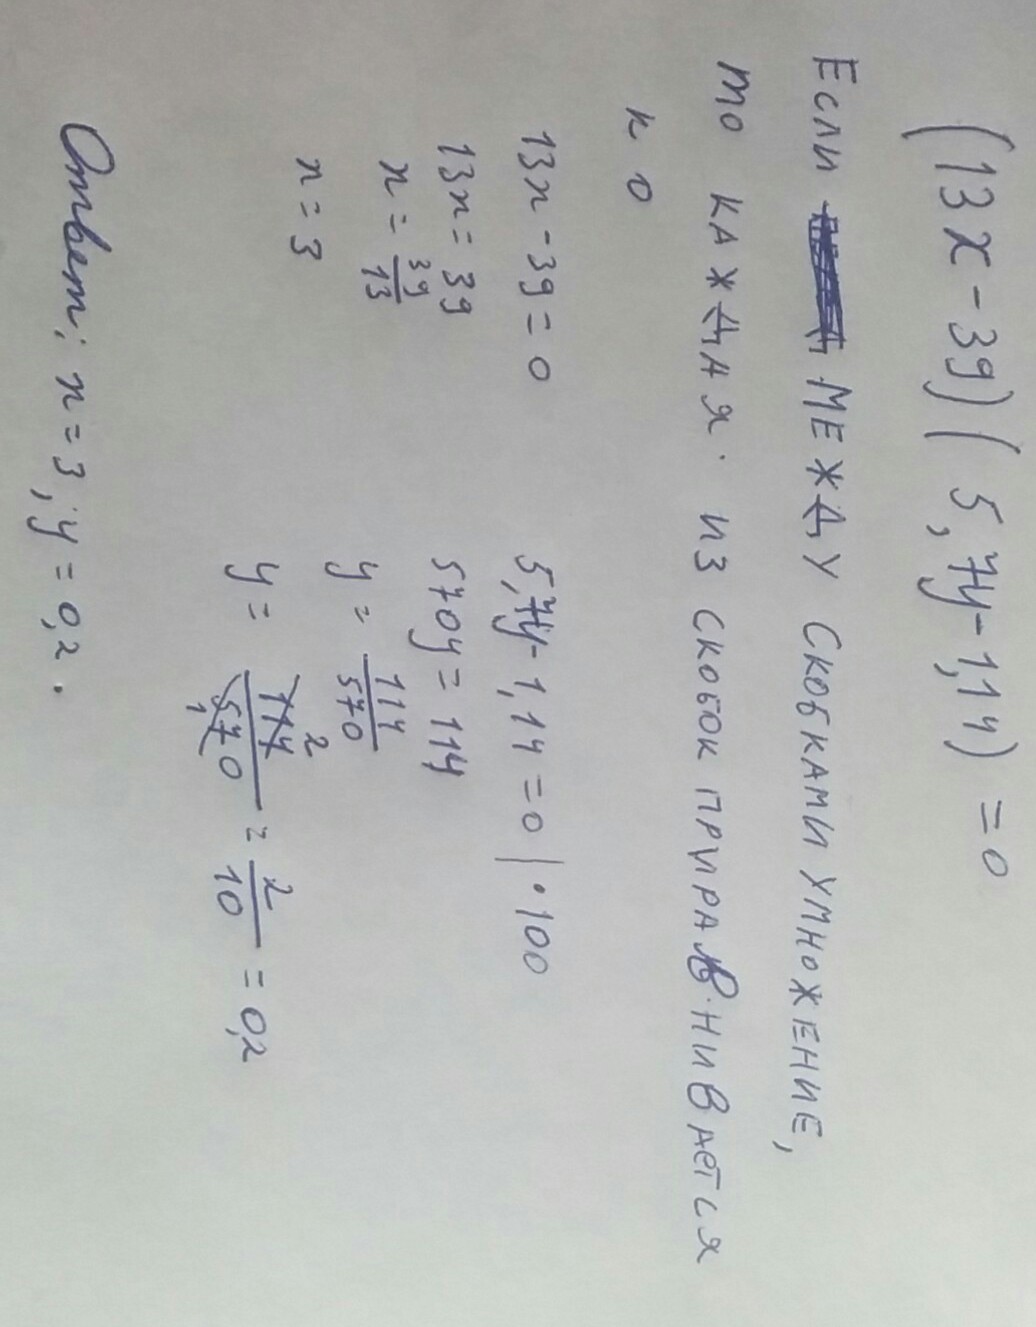 (13x-39)(5,7y-1,14)=0
Если МЕЖДУ СКОБКАМИ УМНОЖЕНИЕ,
то КАЖДАЯ ИЗ СКОБОК ПРИРАВНИВАЕТСЯ
к 0
13x-39=0
13x=39
x=39/13
x=3
5,7y-1,14=0 | •100
570y=114
y=114/570
y=114 2/570 1=2/10=0,2
Ответ: x=3, y=0,2.